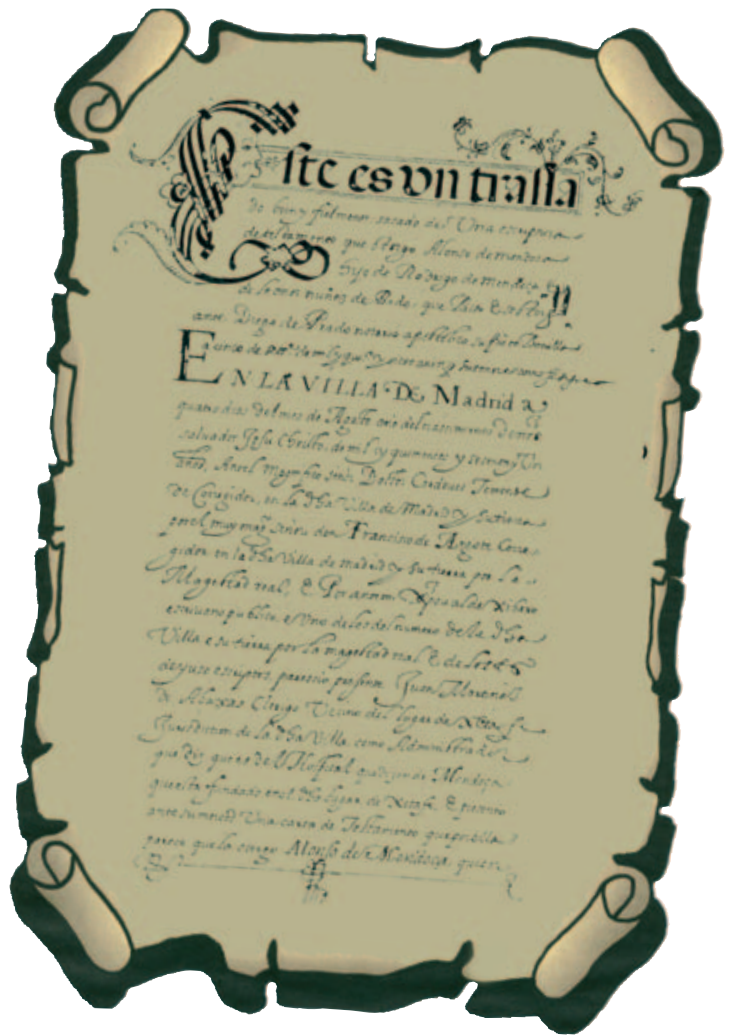 Este es vn trassla
do bien y fielmente sacado de Una escriptura
de testamento que otorgo Alonso de mendoza
hijo de Rodrigo de mendoça, y
de leonor nuñez de Prado, que Paso
ante Diego de Prado notario apostolico su fecha
a
EN LA VILLA DE Madrid a
quatro dias del mes de Agosto año del nascimiento de nro
salvador Jesu Christo, de mil y quinientos y sesenta y Un
años, Ante el Magnifico señor Dottor Tiniente
de Corregidor, en la dha Villa de Madrid y su tierra
por el muy magco señor don Francisco de Argote Corre
gidor en la dha Villa de madrid y su tierra por la
Magestad real, E Por ante mi Xpoual de Ribero
escriuano publico, e Uno de los del numero de la dha
Villa e su tierra por la magestad real E de los testigos
de yuso escriptos, parescio presente Juan
de Clerigo Vezino del lugar de Xetafe
Jurisdiction de la dha Villa, como Administrador
que dixo que era del Hospital que dizen de Mendoça
que esta fundado en el dho lugar de Xetafe, E presento
ante su merced Una carta de Testamento que por ella
paresce que la otorgo Alonso de Mendoça, que